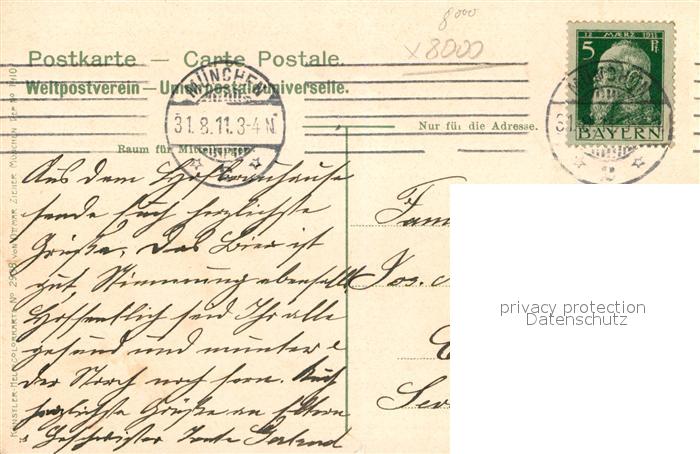 8000
x 8000
12 MÆRZ 1911
5 Pf
BAYERN
Postkarte — Carte Postale.
Weltpostverein — Union postale universelle.
MÜNCHEN
31.8.11.3-4 N.
2
MÜNCHEN
31.
2
Nur für die Adresse.
Raum für Mitteilungen.
Aus dem Hofbräuhause
sende Euch herzlichste
Grüße. Das Bier ist
gut, Stimmung ebenfalls
Hoffentlich seid Ihr alle
gesund und munter &
der Storch noch fern. Auch
herzlichste Grüße an Eltern
& Geschwister Tante
Fam
Jos.
KÜNSTLER-HELIOCOLORKARTE No 2908 VON OTTMAR ZIEHER, MÜNCHEN
privacy protection
Datenschutz